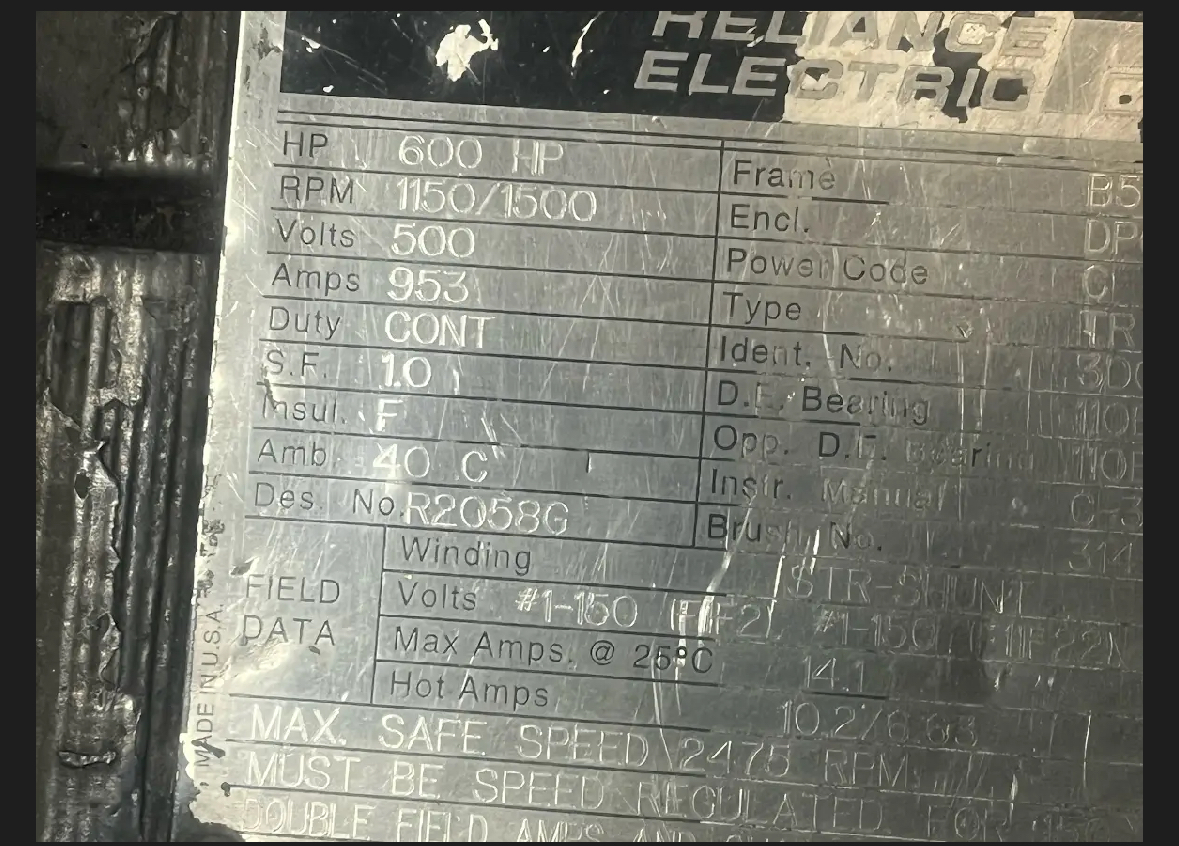 RELIANCE
ELECTRIC
HP 600 HP
RPM 1150/1500
Volts 500
Amps 953
Duty CONT
S.F. 1.0
Insul. F
Amb 40 C
Des. No. R2058G
Frame B5
Encl. DP
Power Code C
Type TR
Ident. No. 300
D.E. Bearing 110
Opp. D.E. Bearing 110
Instr. Manual C-3
Brush No. 314
FIELD DATA
Winding STR-SHUNT
Volts #1-150 (F1F2)
Max Amps. @ 25°C 14.1
Hot Amps
MAX. SAFE SPEED 2475 RPM
MUST BE SPEED REGULATED FOR
DOUBLE FIELD AMPS AND
MADE IN U.S.A.